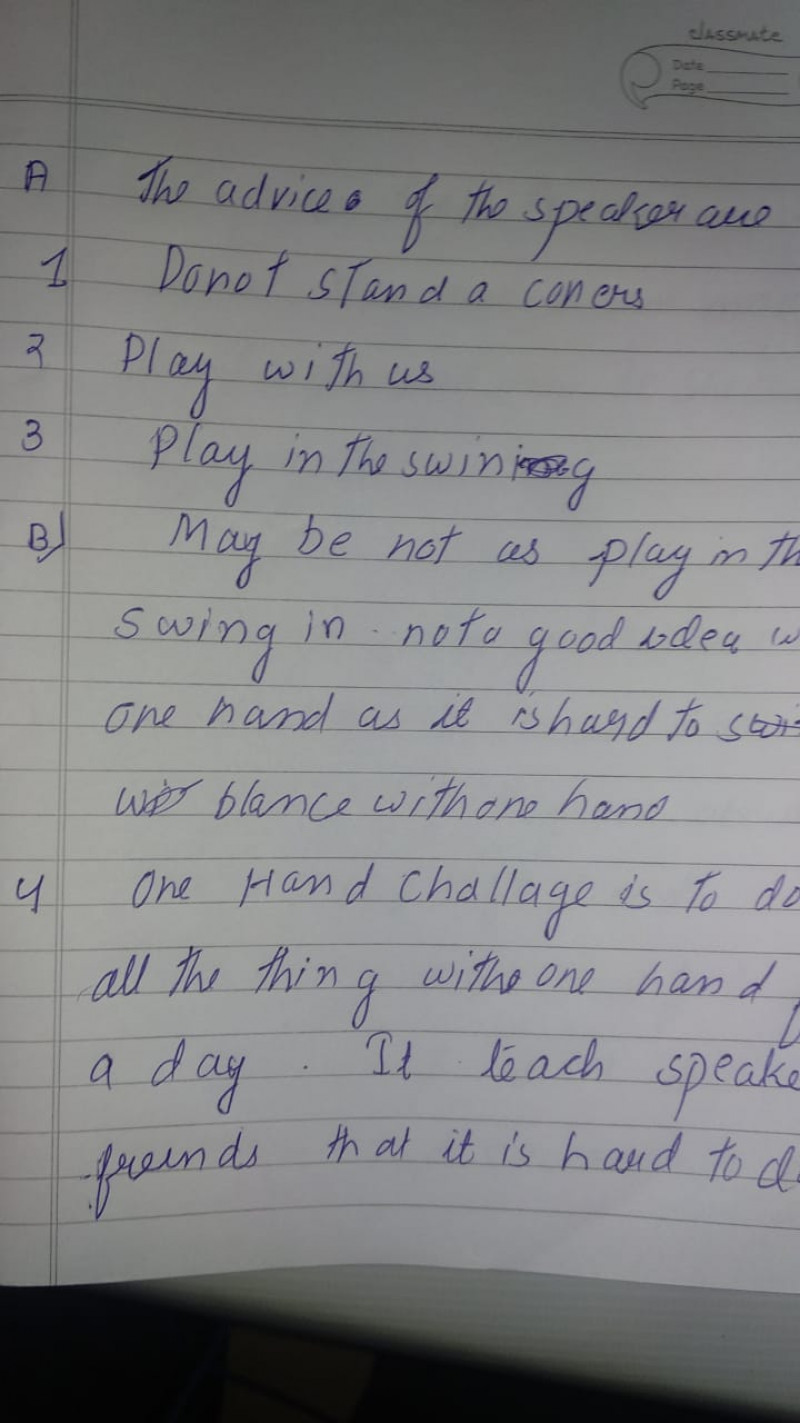 classmate
Date
Page
A The advice of the speaker are
1 Donot stand a coners
2 Play with us
3 Play in the swining
B) May be not as play in th
swing in. not a good idea w
one hand as it is hard to
blance with one hand
4 One Hand Challage is to do
all the thing withe one hand
a day. It teach speake
freinds that it is hard to d